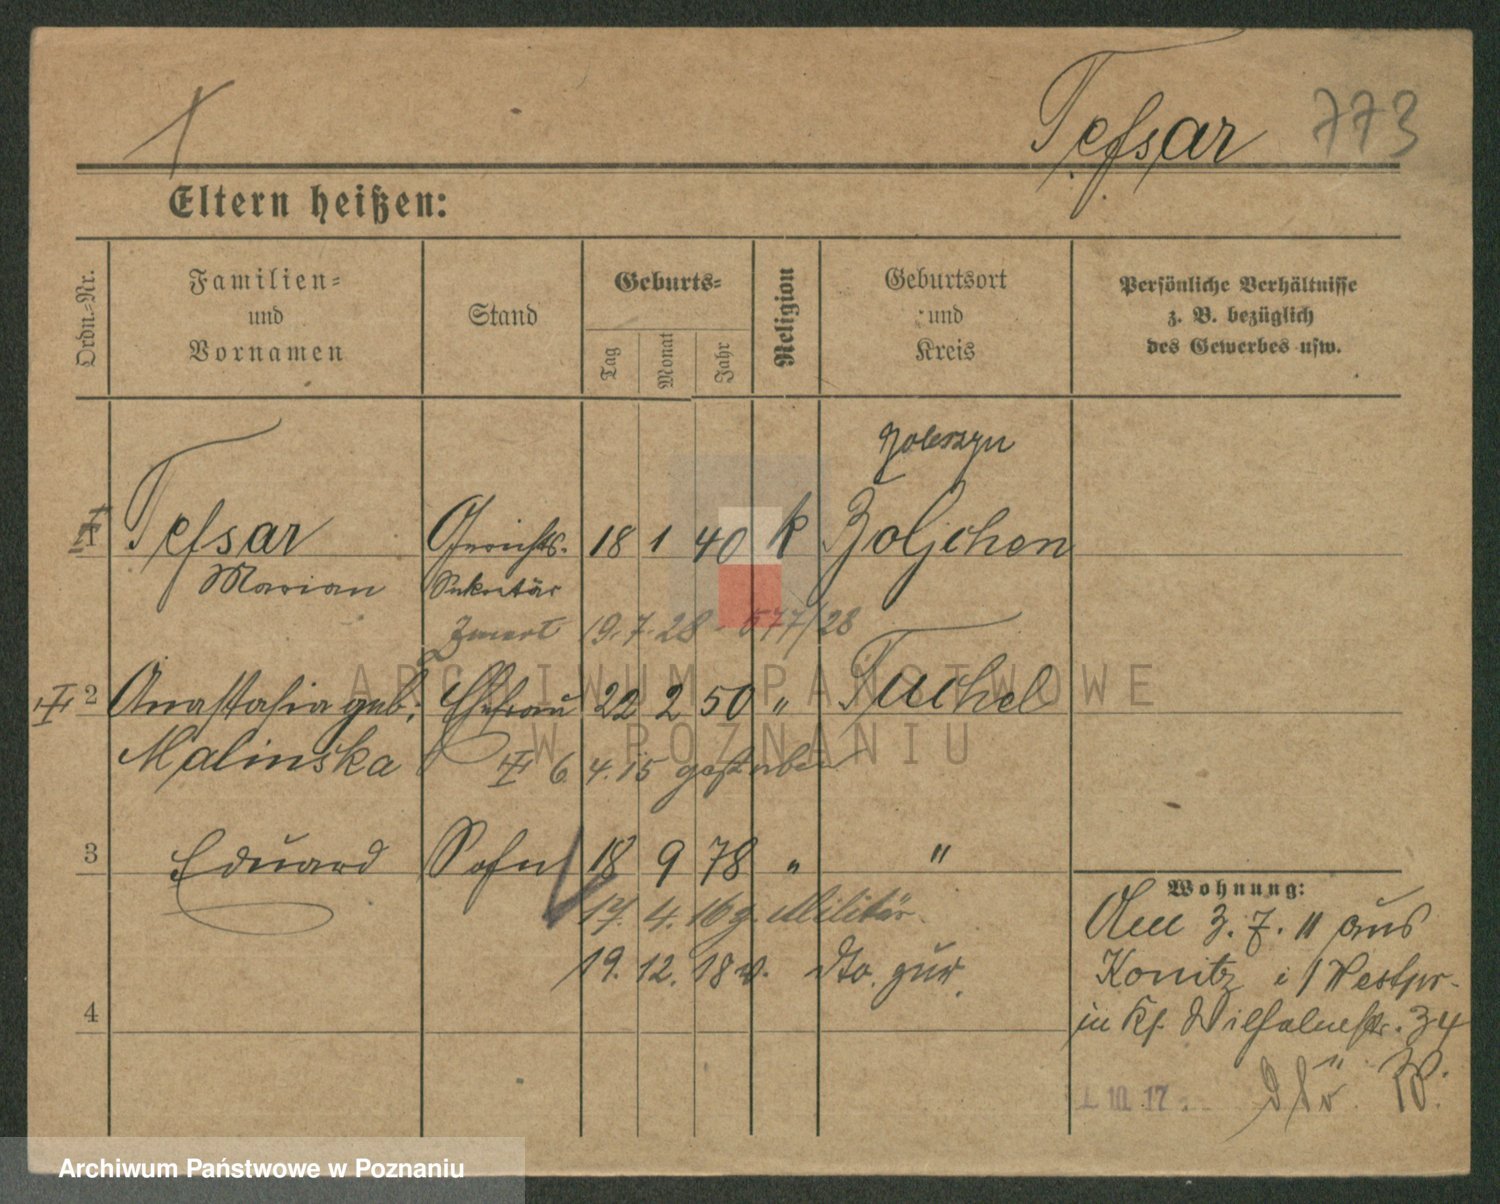 Tessar 773
Eltern heißen:
Ordn.=Nr.
Familien=
und
Vornamen
Stand
Geburts=
Tag
Monat
Jahr
Religion
Geburtsort
und
Kreis
Persönliche Verhältnisse
z. B. bezüglich
des Gewerbes usw.
1 Tessar Gerichts- 18 1 40 k
Marian Sekretär
19. 7. 28 - 577/28
2 Anastasia geb. Ehefrau 22 2 50 " Tuchel
Malinska 6. 4. 15 gestorben
3 Eduard Sohn 18 9 78 " "
17. 4. 16 z. Militär
19. 12. 18 v. dto. zur.
4
Wohnung:
Am 3. 7. 11 aus
Konitz i/Westpr.
in Ks. Wilhelmstr. 34
10. 17
ARCHIWUM PAŃSTWOWE
W POZNANIU
Archiwum Państwowe w Poznaniu